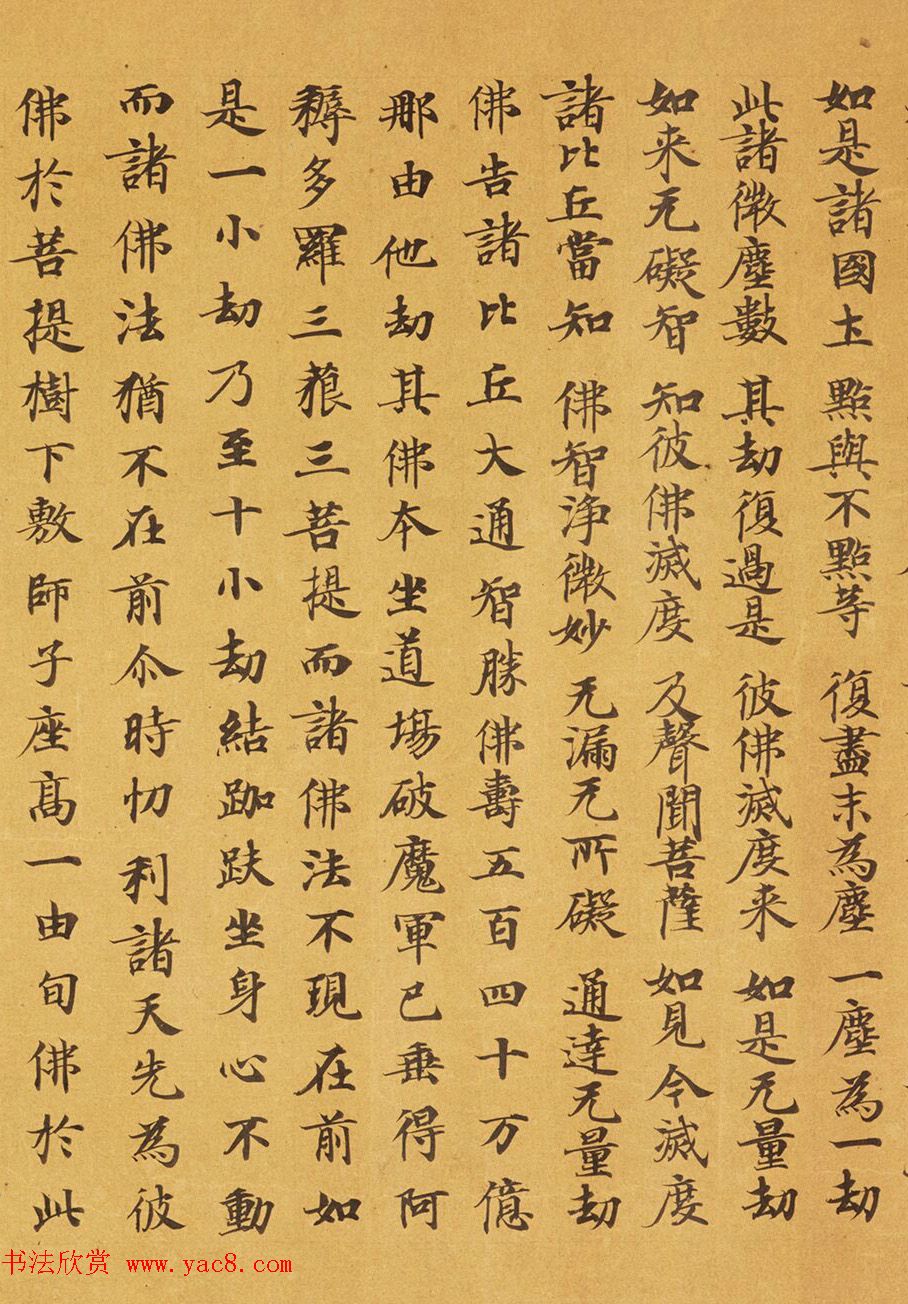 如是諸國土 點與不點等 復盡末為塵 一塵為一劫
此諸微塵數 其劫復過是 彼佛滅度来 如是无量劫
如来无礙智 知彼佛滅度 及聲聞菩薩 如見今滅度
諸比丘當知 佛智淨微妙 无漏无所礙 通達无量劫
佛告諸比丘大通智勝佛壽五百四十万億
那由他劫其佛本坐道場破魔軍已垂得阿
耨多羅三藐三菩提而諸佛法不現在前如
是一小劫乃至十小劫結跏趺坐身心不動
而諸佛法猶不在前尒時忉利諸天先為彼
佛於菩提樹下敷師子座高一由旬佛於此
书法欣赏 www.yac8.com